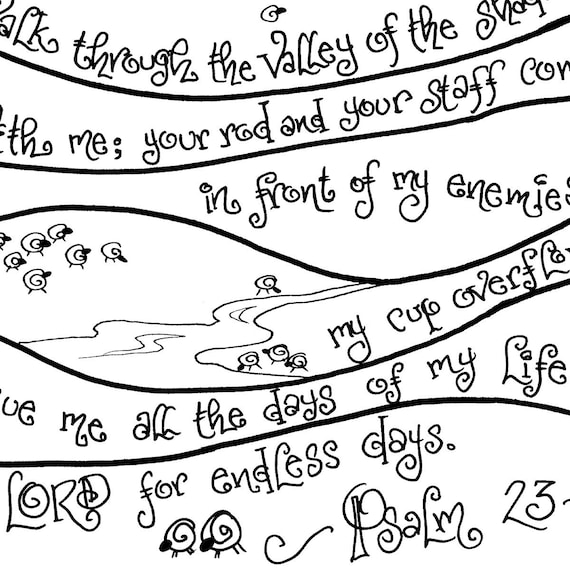 alk through the valley of the sha
ith me; your rod and your staff com
in front of my enemies
my cup overflo
ve me all the days of my life
LORD for endless days.
Psalm 23